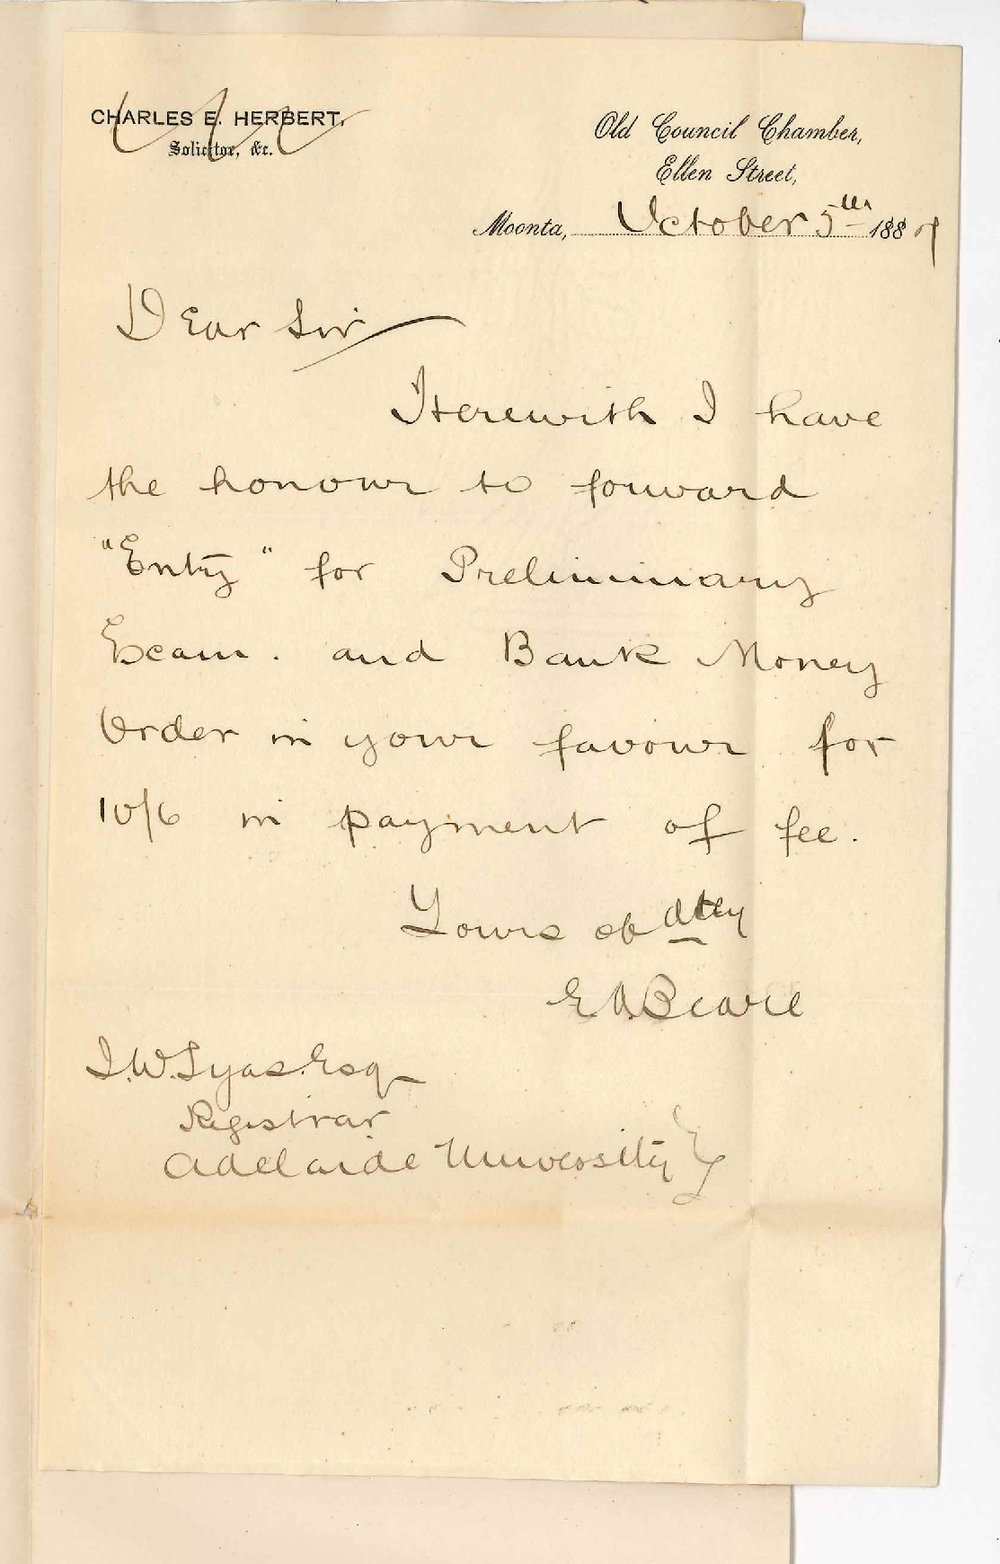 CHARLES E. HERBERT,
Solicitor, &c.
Old Council Chamber,
Ellen Street,
Moonta, October 5th 1889
Dear Sir
Herewith I have
the honour to forward
"Entry" for Preliminary
Exam. and Bank Money
Order in your favour for
10/6 in payment of fee.
Yours obdtly
E A Beare
J. W. Tyas. Esq
Registrar
Adelaide University